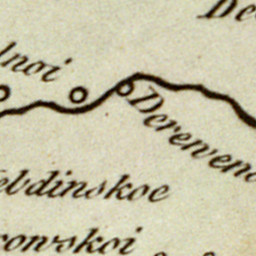 De
lnoi
Derewen
ebdinskoe
rowskoi